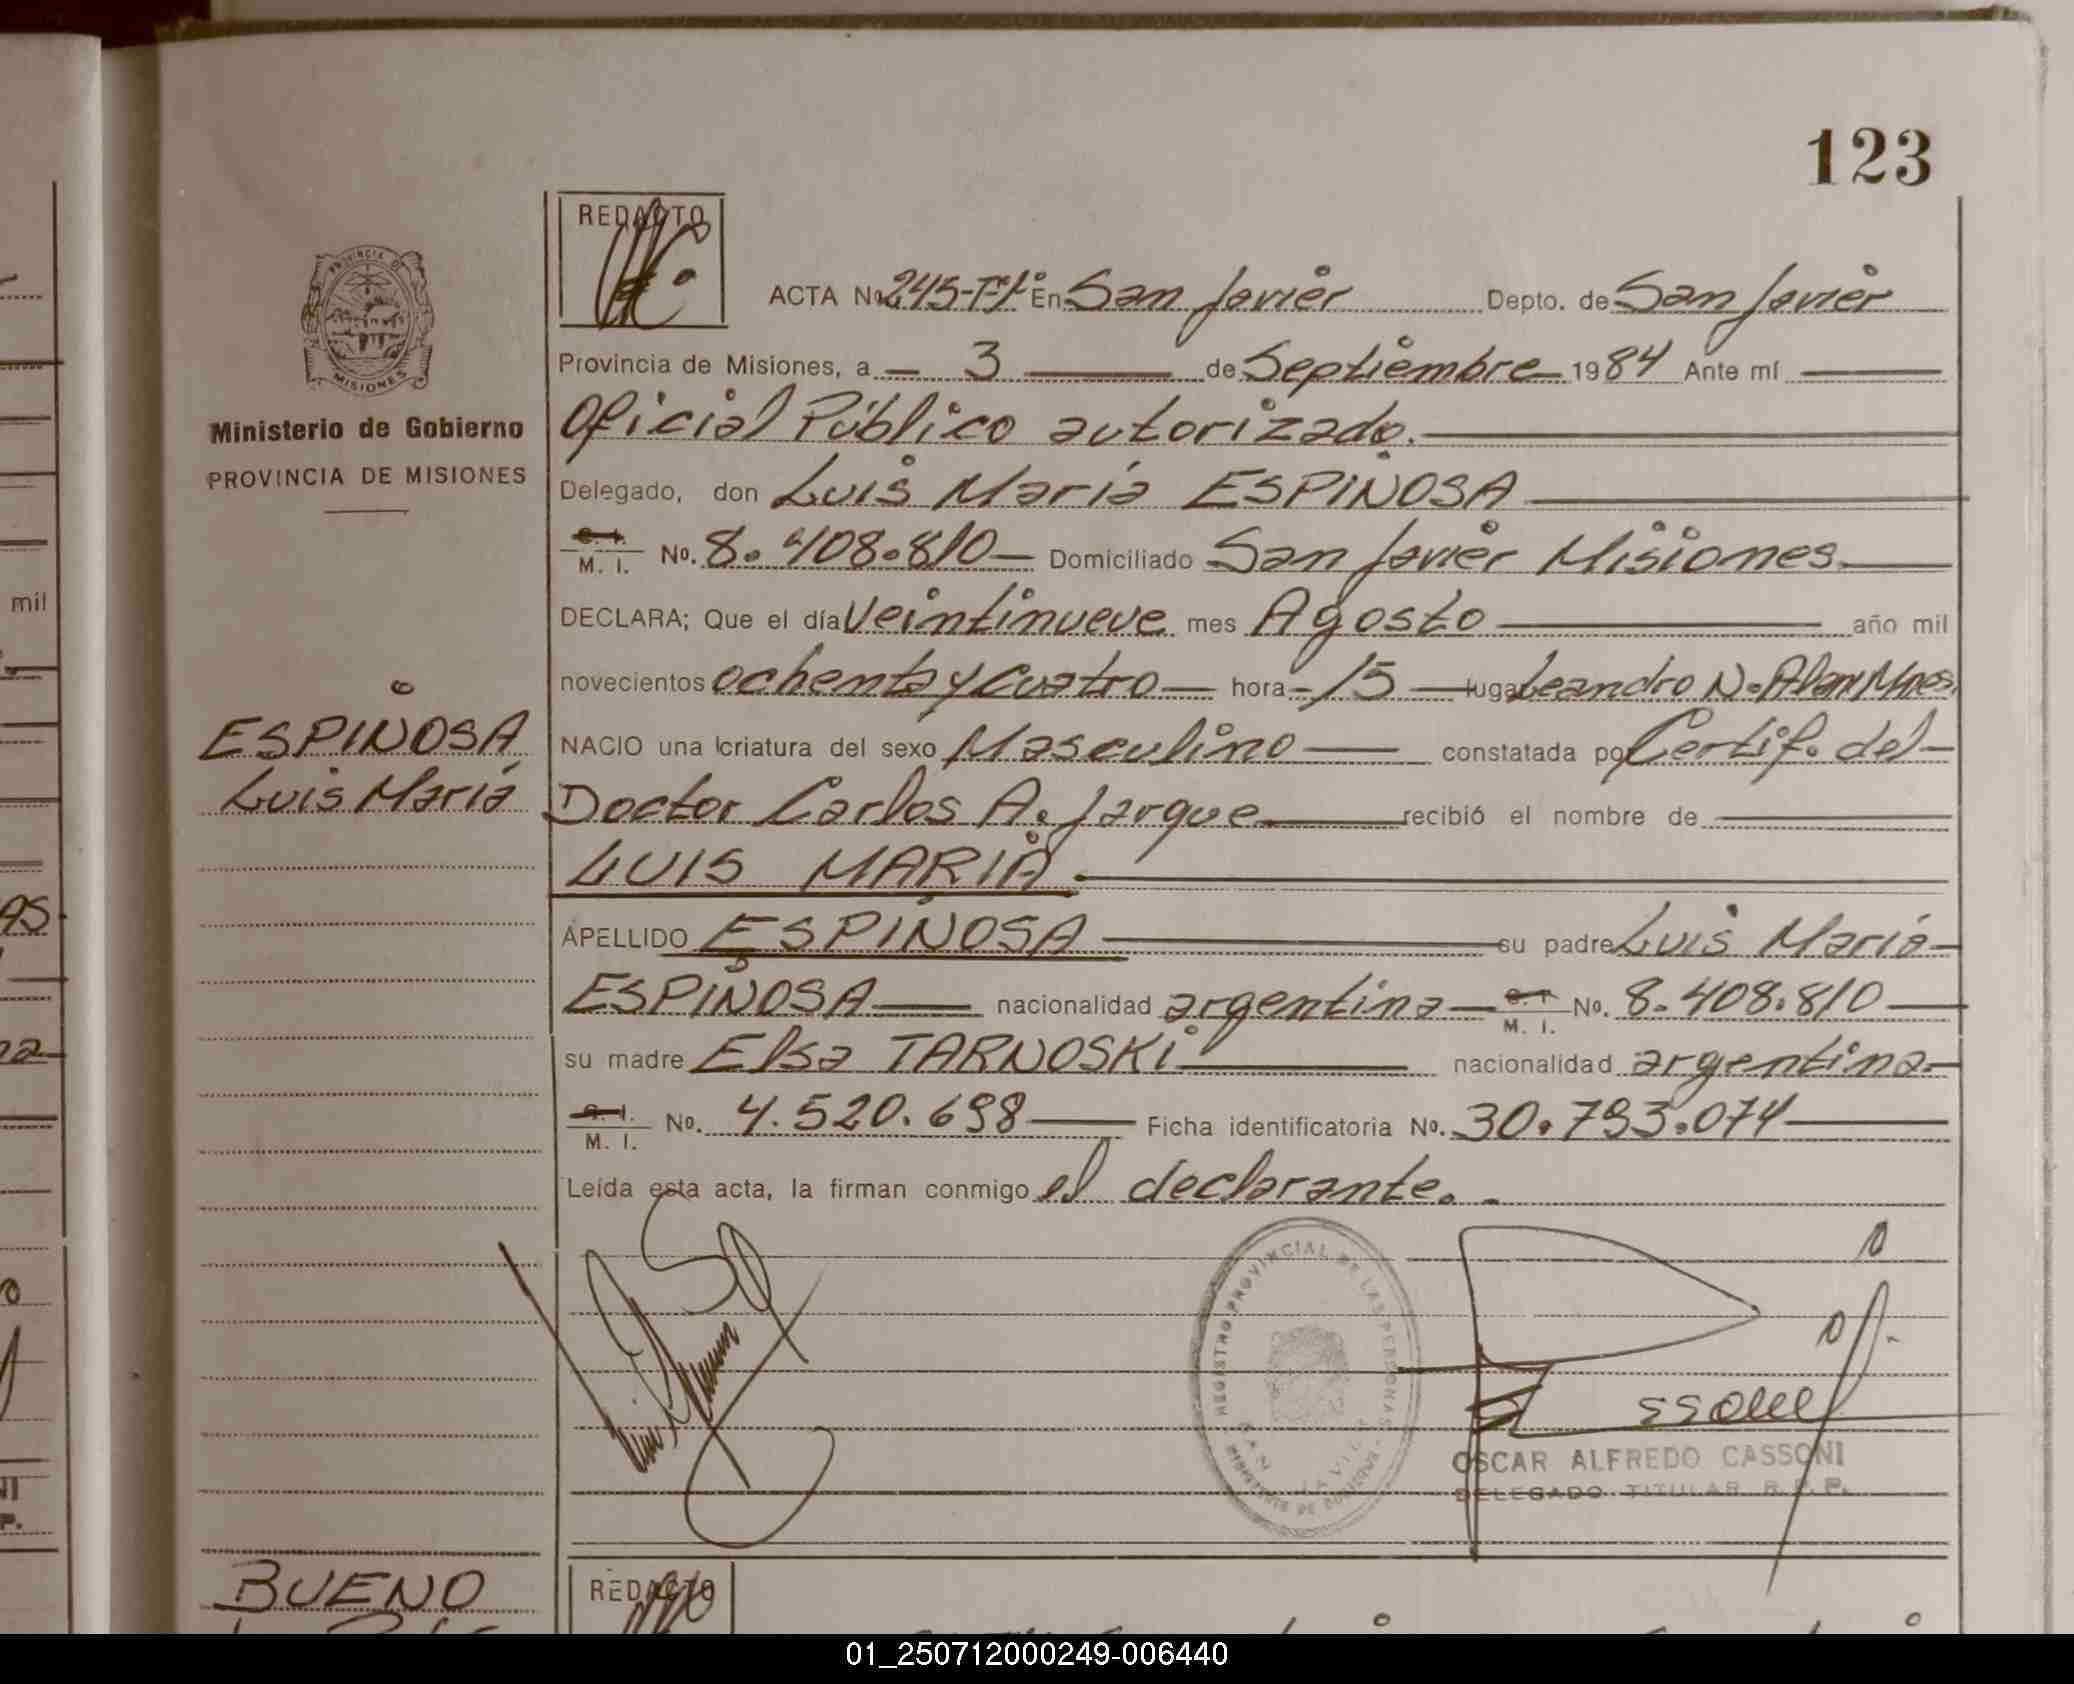 123
REDACTO
ACTA No. 245-Tº1º En San Javier Depto. de San Javier
Provincia de Misiones, a 3 de Septiembre 1984 Ante mí
Oficial Público autorizado.
Delegado, don Luis María ESPINOSA
C. I. M. I. No. 8.408.810 Domiciliado San Javier Misiones
DECLARA; Que el día Veintinueve mes Agosto año mil
novecientos ochenta y cuatro hora 15 lugar Leandro N. Alem Mnes.
NACIO una criatura del sexo Masculino constatada por Certif. del
Doctor Carlos A. Jarque recibió el nombre de
LUIS MARIA
APELLIDO ESPINOSA su padre Luis María
ESPINOSA nacionalidad argentina C. I. M. I. No. 8.408.810
su madre Elsa TARNOSKI nacionalidad argentina
C. I. M. I. No. 4.520.698 Ficha identificatoria No. 30.793.074
Leída esta acta, la firman conmigo el declarante.
REGISTRO PROVINCIAL DE LAS PERSONAS
MINISTERIO DE GOBIERNO
SAN JAVIER
OSCAR ALFREDO CASSONI
DELEGADO TITULAR R. P. P.
PROVINCIA DE
MISIONES
Ministerio de Gobierno
PROVINCIA DE MISIONES
ESPINOSA
Luis María
BUENO
REDACTO
mil
AS
na
NI
P.
01_250712000249-006440